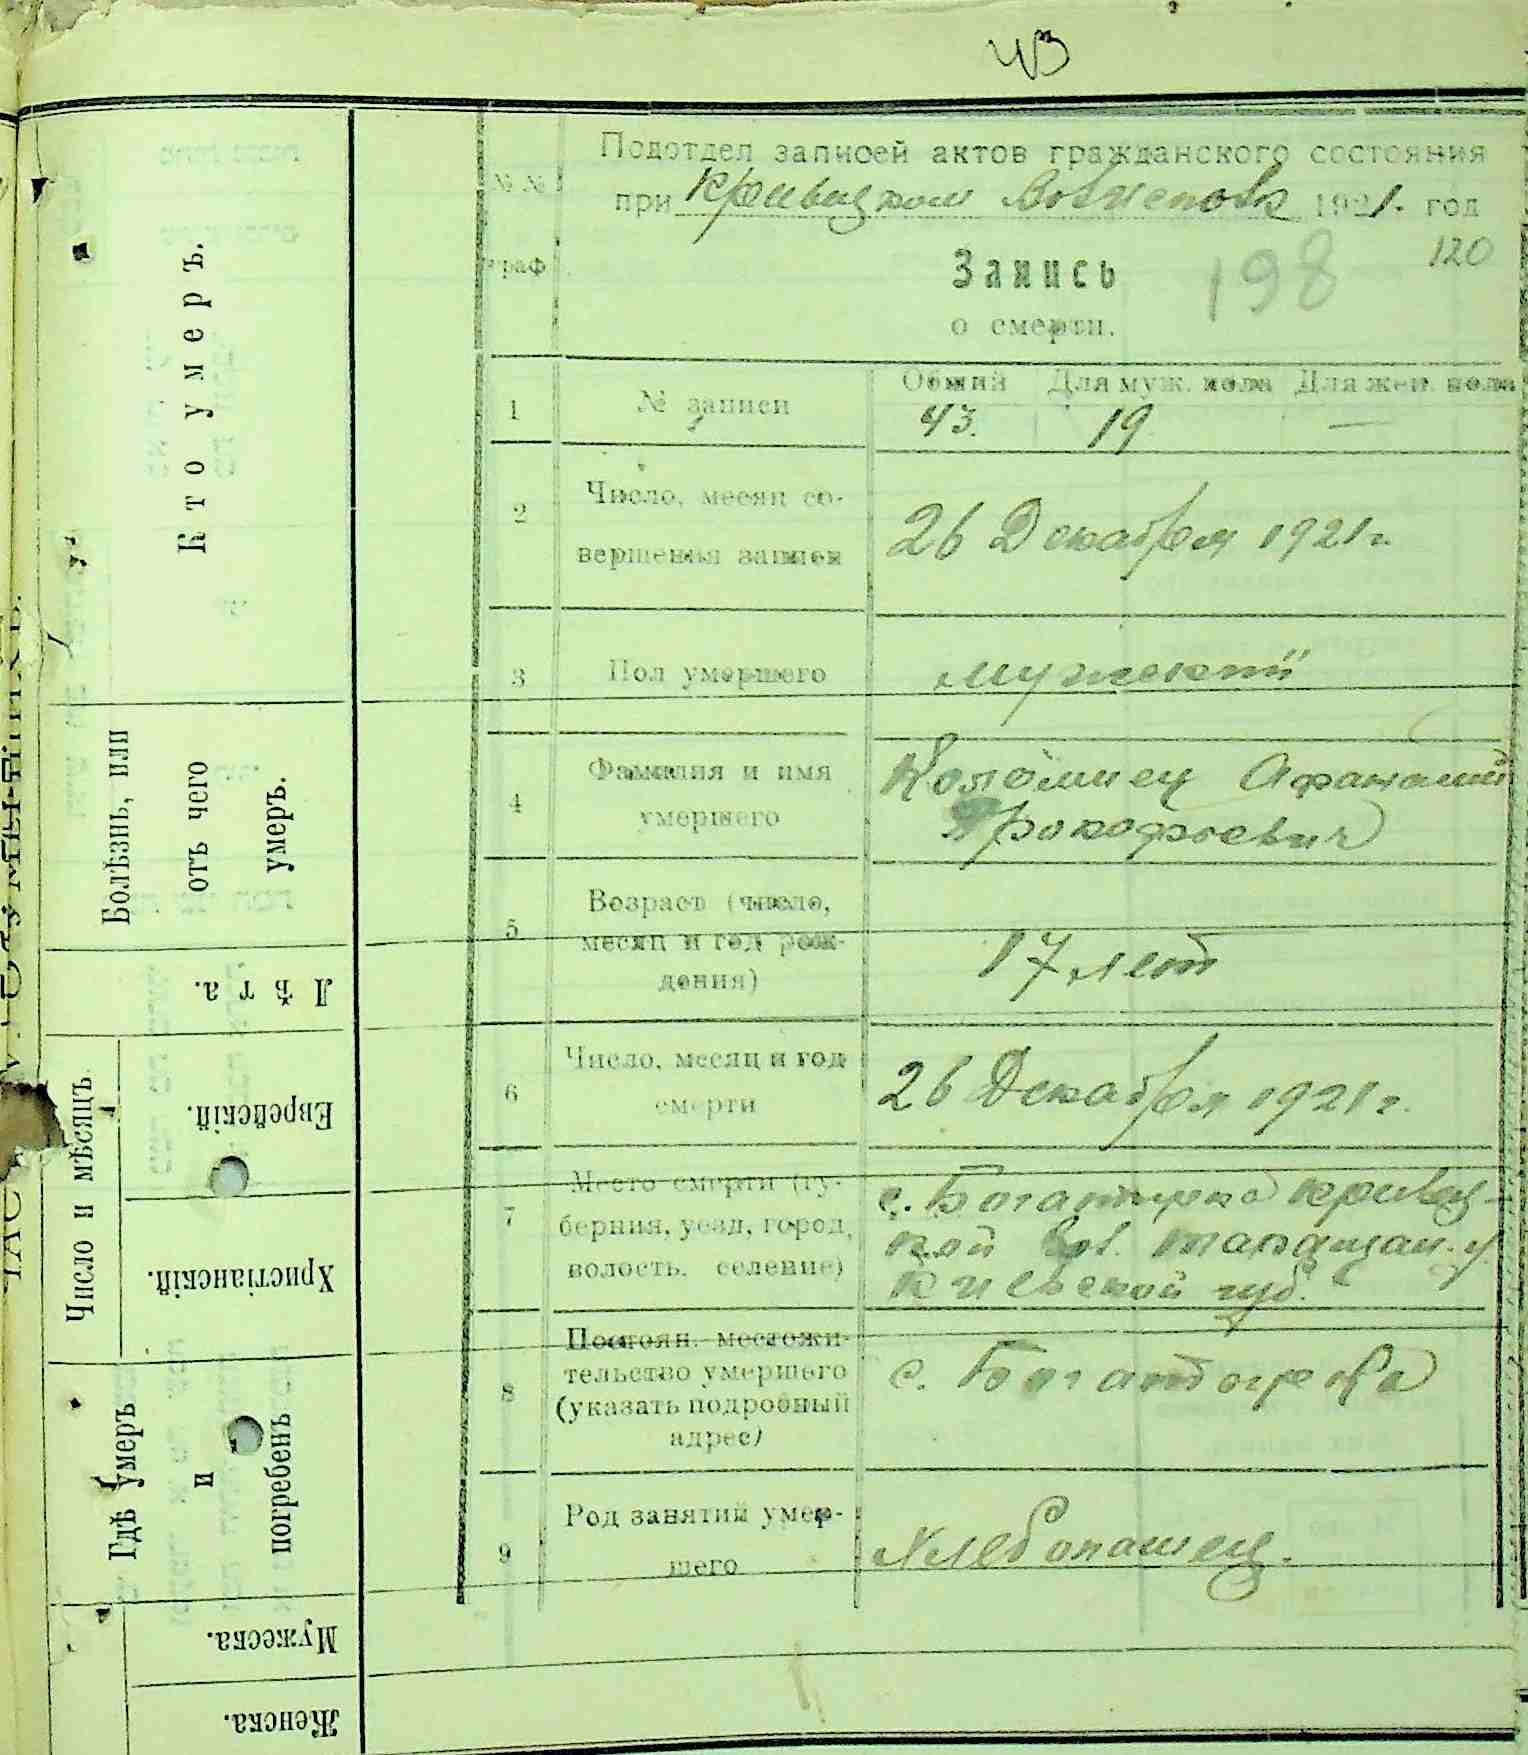 43
Подотдел записей актов гражданского состояния
при Кривицком Волисполк 1921. год
120
198
№ №
граф
Запись
о смерти.
1 № записи
Общий Для муж. пола Для жен. пола
43. 19 —
2 Число, месяц со-
вершения записи
26 Декабря 1921 г.
3 Пол умершего
мужский
4 Фамилия и имя
умершего
Коломиец Афанасий
Прокофьевич
5 Возраст (число,
месяц и год рож-
дения)
17 лет
6 Число, месяц и год
смерти
26 Декабря 1921 г.
7 Место смерти (гу-
берния, уезд, город,
волость, селение)
с. Богатырка Кривец-
кой вол. Таращан. у
Киевской губ.
8 Постоян. местожи-
тельство умершего
(указать подробный
адрес)
с. Богатырка
9 Род занятий умер-
шего
Хлебопашец.
Кто умеръ.
Болѣзнь, или
отъ чего
умеръ.
Лѣта.
Число и мѣсяцъ
Еврейскій.
Христіанскій.
Гдѣ умеръ
и
погребенъ
Мужеска.
Женска.